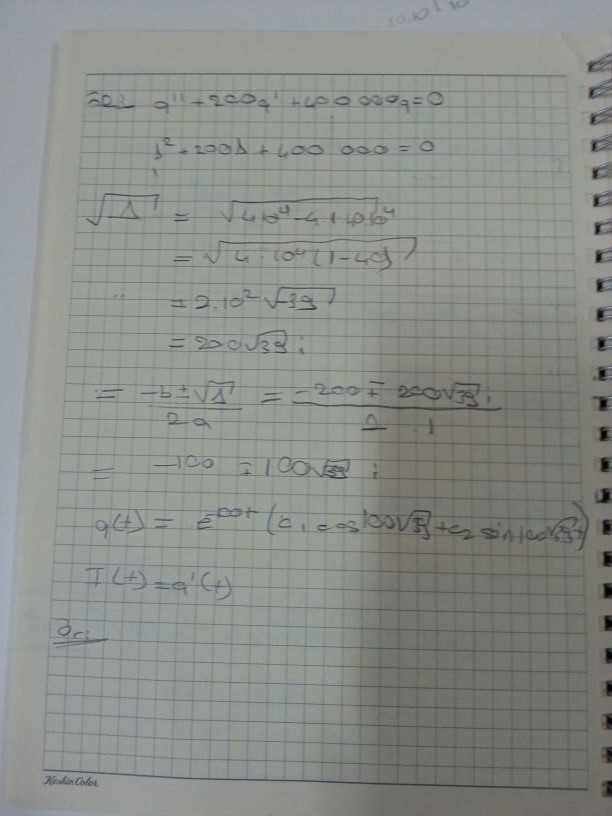 q'' + 200q' + 400 000q = 0
s² + 200s + 400 000 = 0
√Δ = √4.10⁴ - 4.1.40.10⁴
= √4.10⁴(1-40)
= 2.10² √39
= 200√39 i
= -b ± √Δ / 2a = -200 ∓ 200√39 i / 2.1
= -100 ∓ 100√39 i
q(t) = e^-100t (c₁ cos 100√39t + c₂ sin 100√39t)
I(t) = q'(t)
KeskinColor